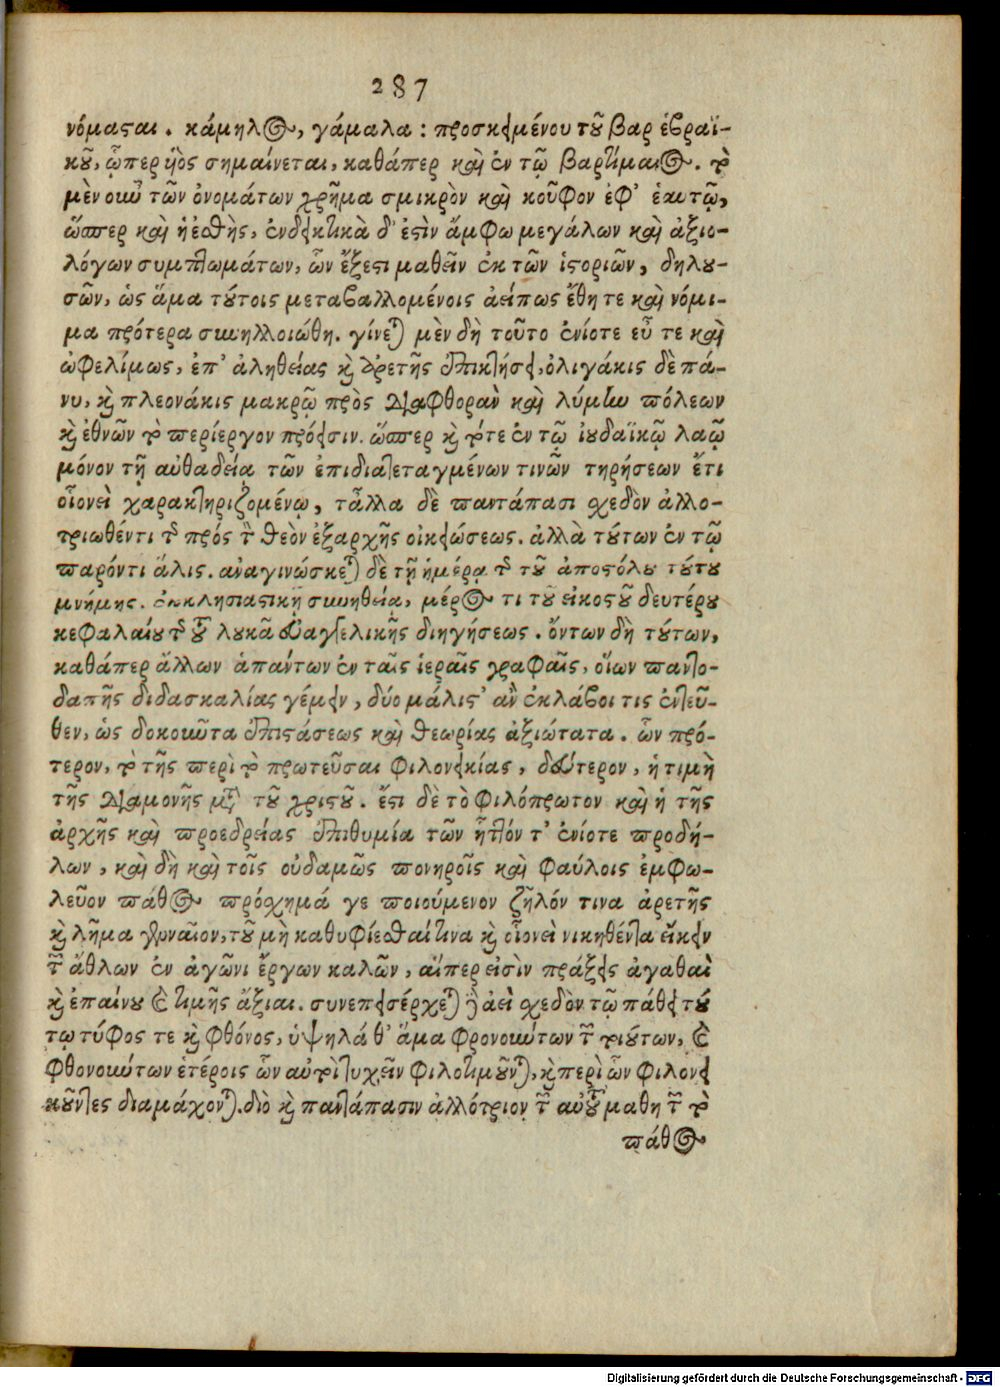 287
νόμασαι. κάμηλος, γάμαλα: προσκειμένου τοῦ βαρ ἑβραϊ-
κοῦ, ᾧπερ υἱὸς σημαίνεται, καθάπερ καὶ ἐν τῷ βαρτίμαιος. τὸ
μὲν οὖν τῶν ὀνομάτων χρῆμα σμικρὸν καὶ κοῦφον ἐφ' ἑαυτῷ,
ὥσπερ καὶ ἡ ἐσθὴς, ἐνδεικτικὰ δ' ἐστὶν ἄμφω μεγάλων καὶ ἀξιο-
λόγων συμπτωμάτων, ὧν ἔξεστι μαθεῖν ἐκ τῶν ἱστοριῶν, δηλου-
σῶν, ὡς ἅμα τούτοις μεταβαλλομένοις ἀείπως ἔθη τε καὶ νόμι-
μα πρότερα συνηλλοιώθη. γίνεται μὲν δὴ τοῦτο ἐνίοτε εὖ τε καὶ
ὠφελίμως, ἐπ' ἀληθείας καὶ ἀρετῆς ἐπικτήσει, ὀλιγάκις δὲ πά-
νυ, καὶ πλεονάκις μακρῷ πρὸς διαφθορὰν καὶ λύμην πόλεων
καὶ ἐθνῶν τὸ περίεργον πρόεισιν. ὥσπερ καὶ τότε ἐν τῷ ἰουδαϊκῷ λαῷ
μόνον τῇ αὐθαδείᾳ τῶν ἐπιδιατεταγμένων τινῶν τηρήσεων ἔτι
οἱονεὶ χαρακτηριζομένῳ, τἆλλα δὲ παντάπασι σχεδὸν ἀλλο-
τριωθέντι τῆς πρός τὸν θεὸν ἐξαρχῆς οἰκειώσεως. ἀλλὰ τούτων ἐν τῷ
παρόντι ἅλις. ἀναγινώσκεται δὲ τῇ ἡμέρᾳ τῆς τοῦ ἀποστόλου τούτου
μνήμης. ἐκκλησιαστικῇ συνηθείᾳ, μέρος τι τοῦ εἰκοστοῦ δευτέρου
κεφαλαίου τῆς τοῦ λουκᾶ εὐαγγελικῆς διηγήσεως. ὄντων δὴ τούτων,
καθάπερ ἄλλων ἁπάντων ἐν ταῖς ἱεραῖς γραφαῖς, οἵων παντο-
δαπῆς διδασκαλίας γέμειν, δύο μάλιστ' ἂν ἐκλάβοι τις ἐντεῦ-
θεν, ὡς δοκοῦντα ἐπιστάσεως καὶ θεωρίας ἀξιώτατα. ὧν πρό-
τερον, τὸ τῆς περὶ τὸ πρωτεῦσαι φιλονεικίας, δεύτερον, ἡ τιμὴ
τῆς διαμονῆς μετὰ τοῦ χριστοῦ. ἔστι δὲ τὸ φιλόπρωτον καὶ ἡ τῆς
ἀρχῆς καὶ προεδρείας ἐπιθυμία τῶν ἧττόν τ' ἐνίοτε προδή-
λων, καὶ δὴ καὶ τοῖς οὐδαμῶς πονηροῖς καὶ φαύλοις ἐμφω-
λεῦον πάθος πρόσχημά γε ποιούμενον ζῆλόν τινα ἀρετῆς
καὶ λῆμα γενναῖον, τοῦ μὴ καθυφίεσθαί τινα καὶ οἱονεὶ νικηθέντα εἴκειν
τῶν ἄθλων ἐν ἀγῶνι ἔργων καλῶν, αἵπερ εἰσὶν πράξεις ἀγαθαὶ
καὶ ἐπαίνου καὶ τιμῆς ἄξιαι. συνεπεισέρχεται γὰρ ἀεὶ σχεδὸν τῷ πάθει τού
τῳ τύφος τε καὶ φθόνος, ὑψηλά θ' ἅμα φρονούντων τῶν τοιούτων, καὶ
φθονούντων ἑτέροις ὧν αὐτοὶ τυχεῖν φιλοτιμοῦνται, καὶ περὶ ὧν φιλονει
κοῦντες διαμάχονται. διὸ καὶ παντάπασιν ἀλλότριον τῶν αὐτοῦ μαθητῶν τὸ
πάθος
Digitalisierung gefördert durch die Deutsche Forschungsgemeinschaft - DFG